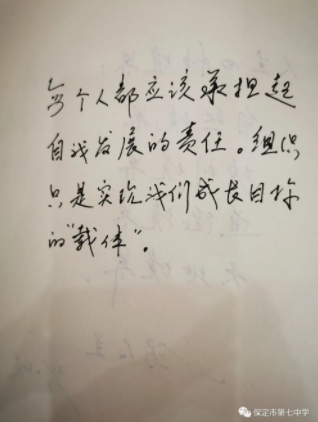 每个人都应该承担起
自我发展的责任。组织
只是实现我们成长目标
的“载体”。
保定市第七中学